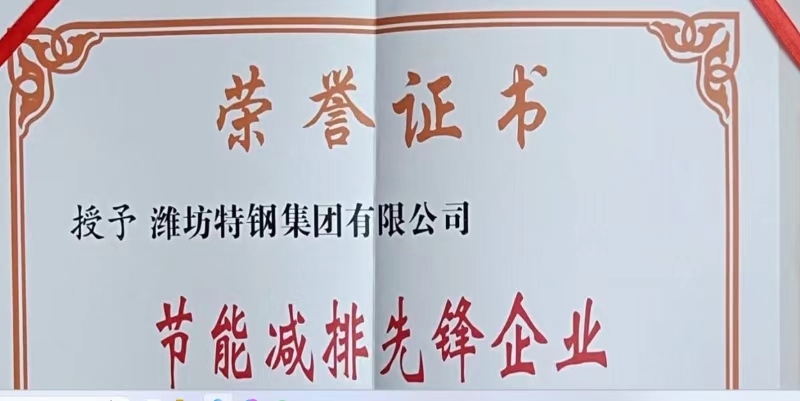 荣誉证书
授予 潍坊特钢集团有限公司
节能减排先锋企业